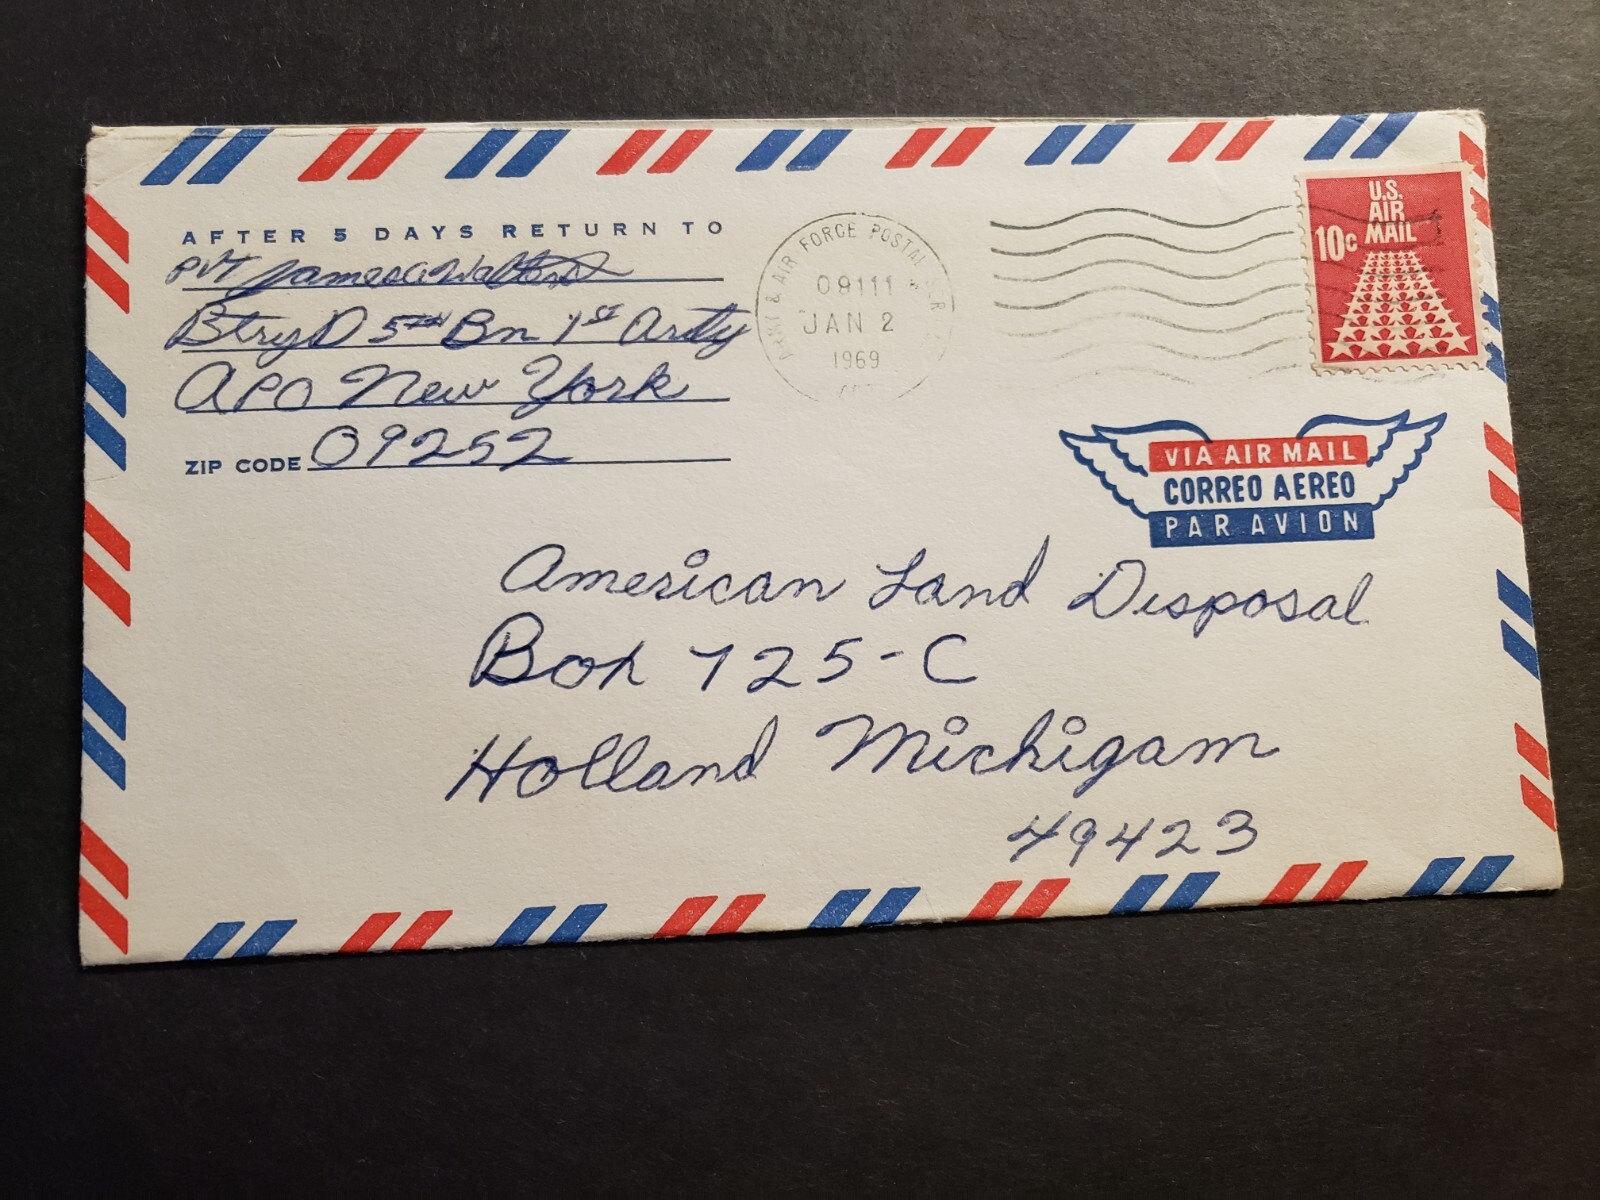 AFTER 5 DAYS RETURN TO
Pvt James A Walton
Btry D 5th Bn 1st Arty
APO New York
ZIP CODE 09252
ARMY & AIR FORCE POSTAL SERVICE
JAN 2
1969
U.S.
AIR
MAIL
10c
VIA AIR MAIL
CORREO AEREO
PAR AVION
American Land Disposal
Box 725-C
Holland Michigam
49423